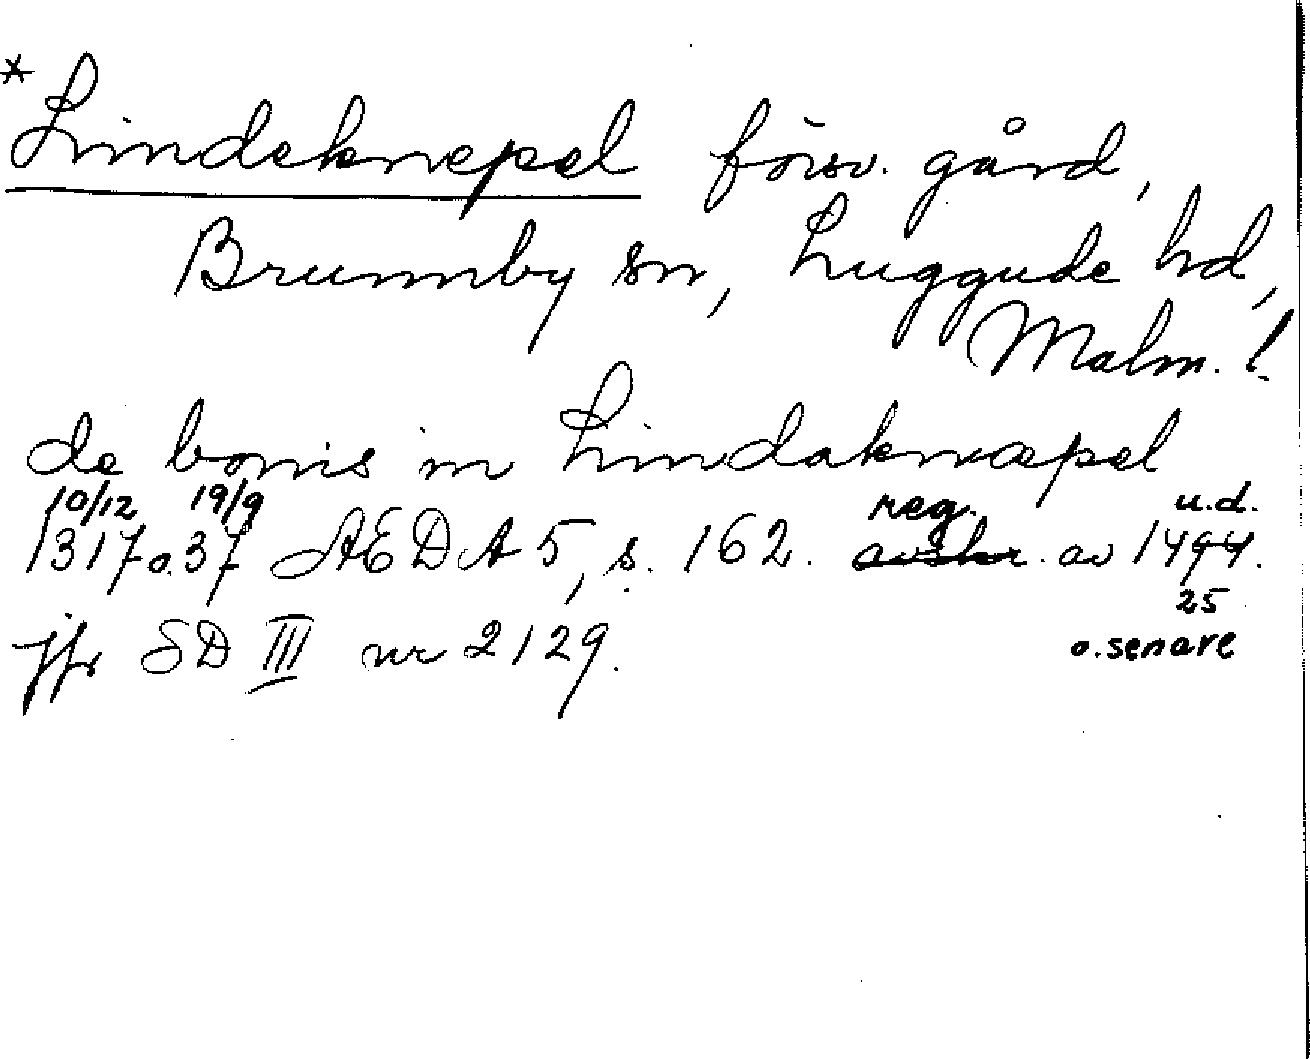 *Lindeknepel försv. gård,
Brunnby sn, Luggude hd,
Malm. l.
de bonis in Lindaknæpel
10/12 19/9 reg. u.d.
1317 o. 37 AEDA 5, s. 162. avskr. av 1494.
25
jfr SD III nr 2129. o. senare